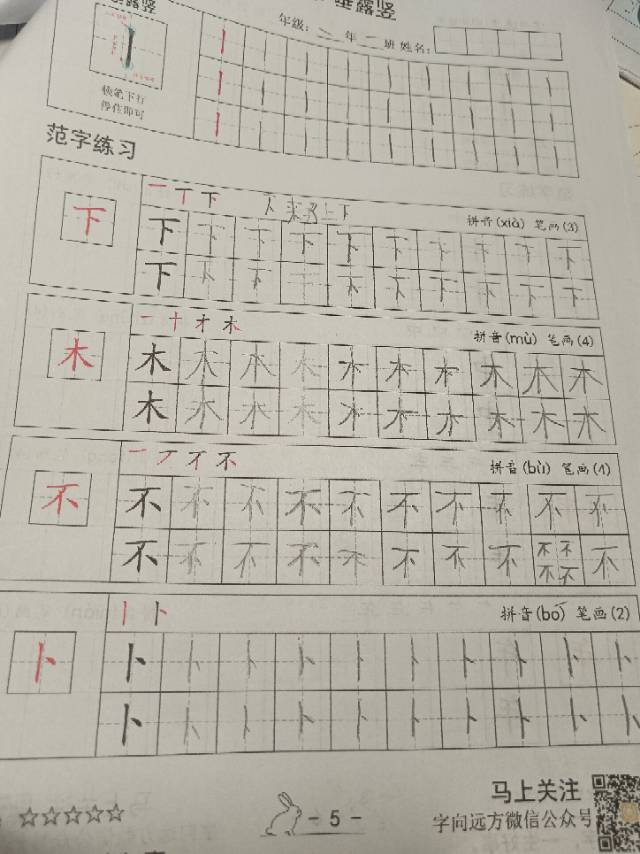 垂露竖
年级: 二 年 二 班 姓名:
垂露竖
快笔下行
停住即可
范字练习
下 一 丅 下 下 来 上 下 拼音(xià) 笔画(3)
下 下 下 下 下 下 下 下 下
下 下 下 下 下 下 下 下 下
木 一 十 才 木 拼音(mù) 笔画(4)
木 木 木 木 木 木 木 木 木
木 木 木 木 木 木 木 木 木
不 一 丆 不 不 拼音(bù) 笔画(4)
不 不 不 不 不 不 不 不 不 不
不 不 不 不 不 不 不 不 不 不 不 不 不
卜 丨 卜 拼音(bo) 笔画(2)
卜 卜 卜 卜 卜 卜 卜 卜 卜 卜
卜 卜 卜 卜 卜 卜 卜 卜 卜 卜
马上关注
- 5 -
字向远方微信公众号